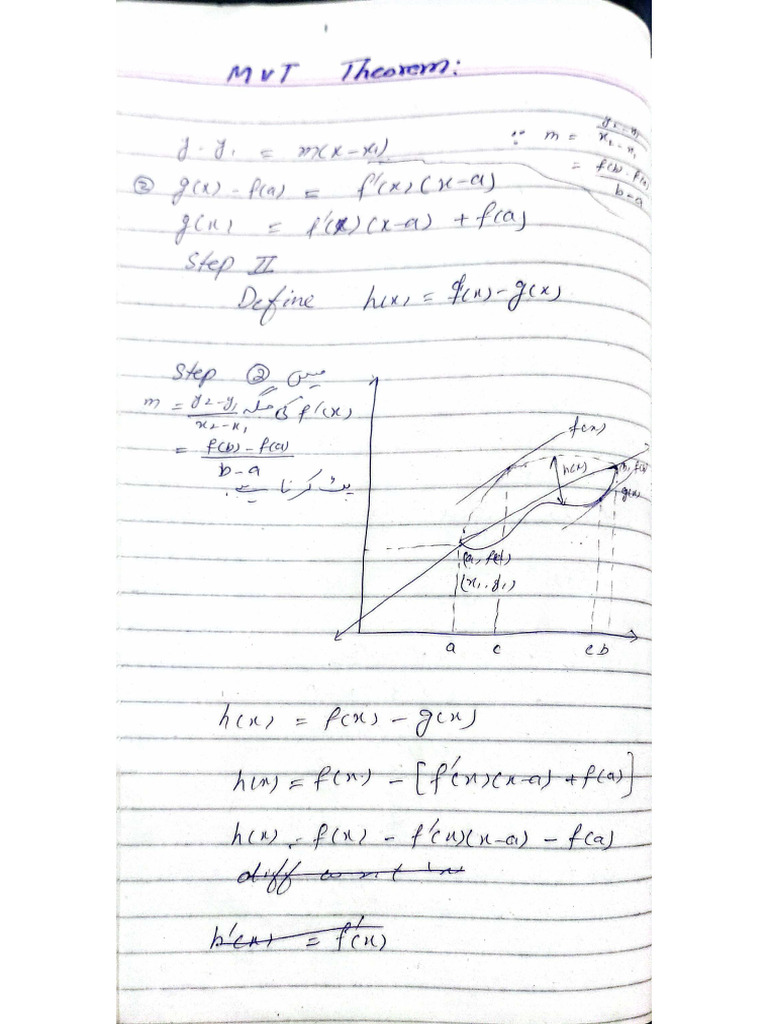 MVT Theorem:
y - y₁ = m(x - x₁) ∵ m = y₂ - y₁ / x₂ - x₁
= f(b) - f(a) / b - a
② g(x) - f(a) = f'(x)(x-a)
g(x) = f'(x)(x-a) + f(a)
Step II
Define h(x) = f(x) - g(x)
Step ② میں
m = y₂-y₁ / x₂-x₁ کی جگہ f'(x)
= f(b) - f(a) / b - a
پٹ کرنا ہے.
f(x)
h(x)
g(x)
(a, f(a))
(x₁, y₁)
a c c b
h(x) = f(x) - g(x)
h(x) = f(x) - [f'(x)(x-a) + f(a)]
h(x) = f(x) - f'(x)(x-a) - f(a)
h'(x) = f'(x)